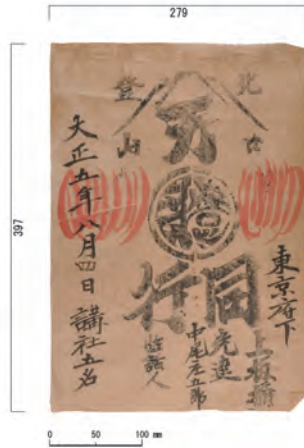 279
397
北口
登山
東京府下
上板橋
同行
先達
中尾庄五郎
世話人
大正五年八月四日 講社五名
0 50 100 mm